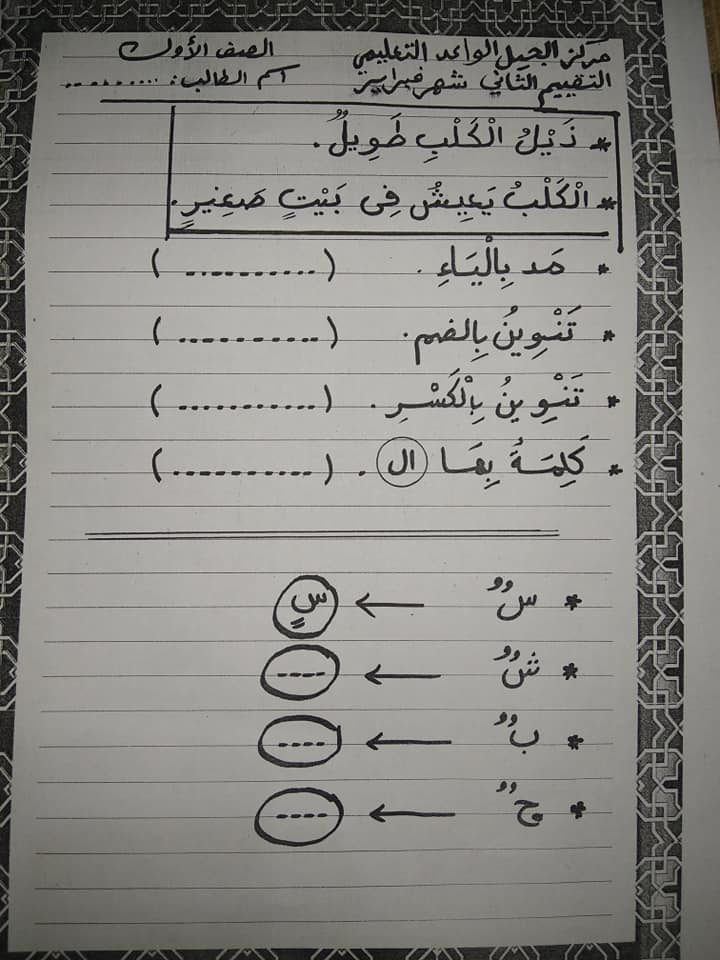 مركز الجيل الواعد التعليمي الصف الأول
التقييم الثاني شهر فبراير اسم الطالب: ..........
* ذَيْلُ الْكَلْبِ طَوِيلٌ.
* الْكَلْبُ يَعِيشُ فِى بَيْتٍ صَغِيرٍ.
* مَد بِالْيَاءِ. (..........)
* تَنْوِينُ بِالضم. (..........)
* تَنْوِينُ بِالْكَسْرِ. (..........)
* كَلِمَةُ بِهَا ال. (..........)
* سٌ ← سٍ
* شٌ ← ----
* بٌ ← ----
* جٌ ← ----